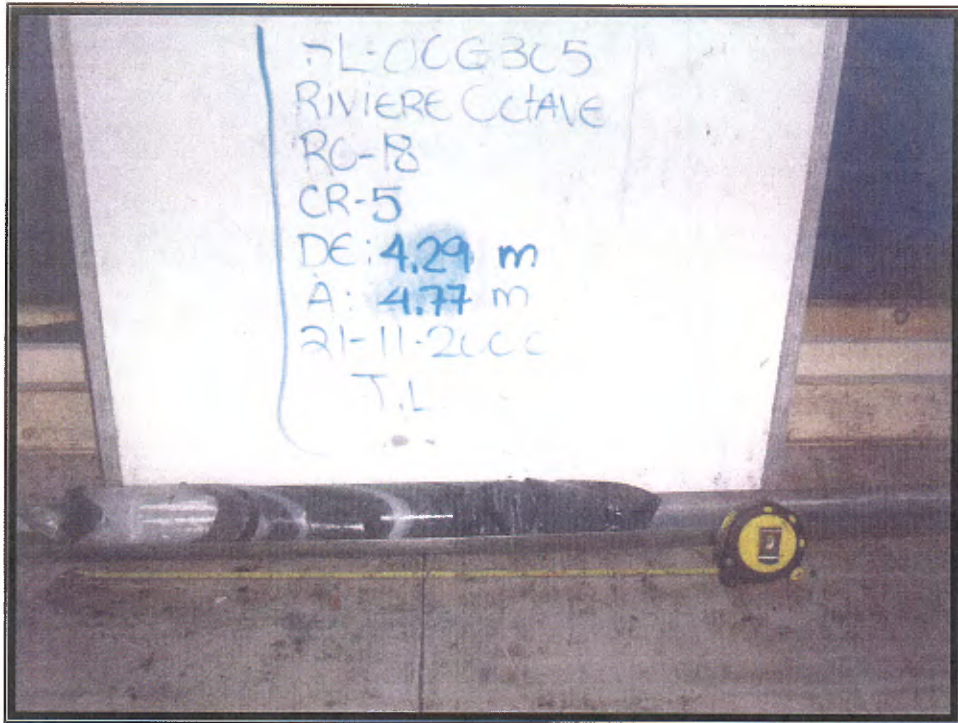 TL-OCG305
RIVIERE OCTAVE
RO-18
CR-5
DE: 4.29 m
À: 4.77 m
21-11-2000
T.L